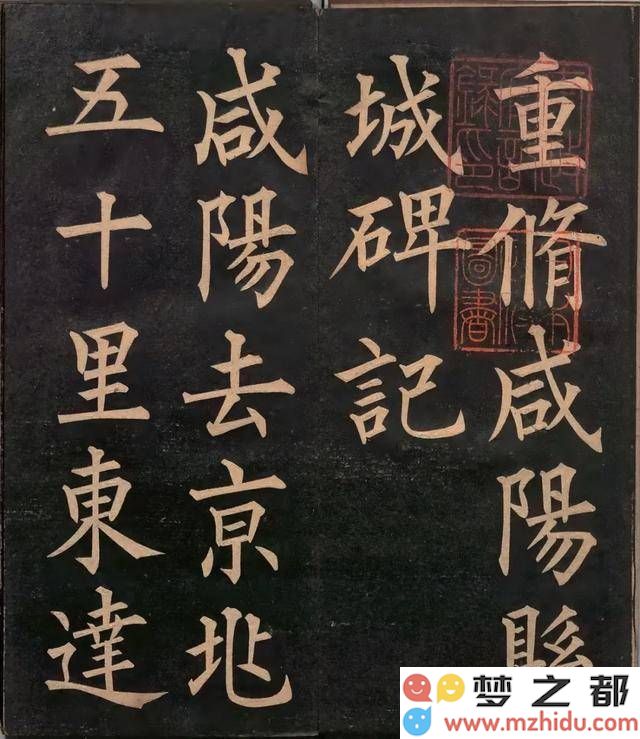 重脩咸陽縣
城碑記
咸陽去京北
五十里東達
梦之都
www.mzhidu.com